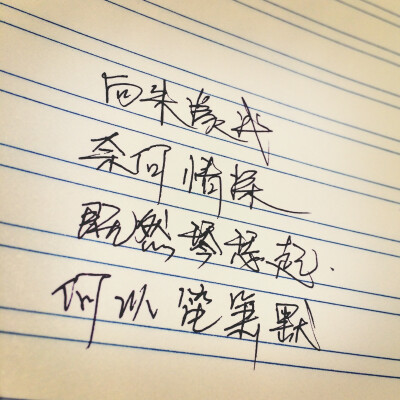 向来缘浅
奈何情深
既然琴瑟起.
何以笙箫默